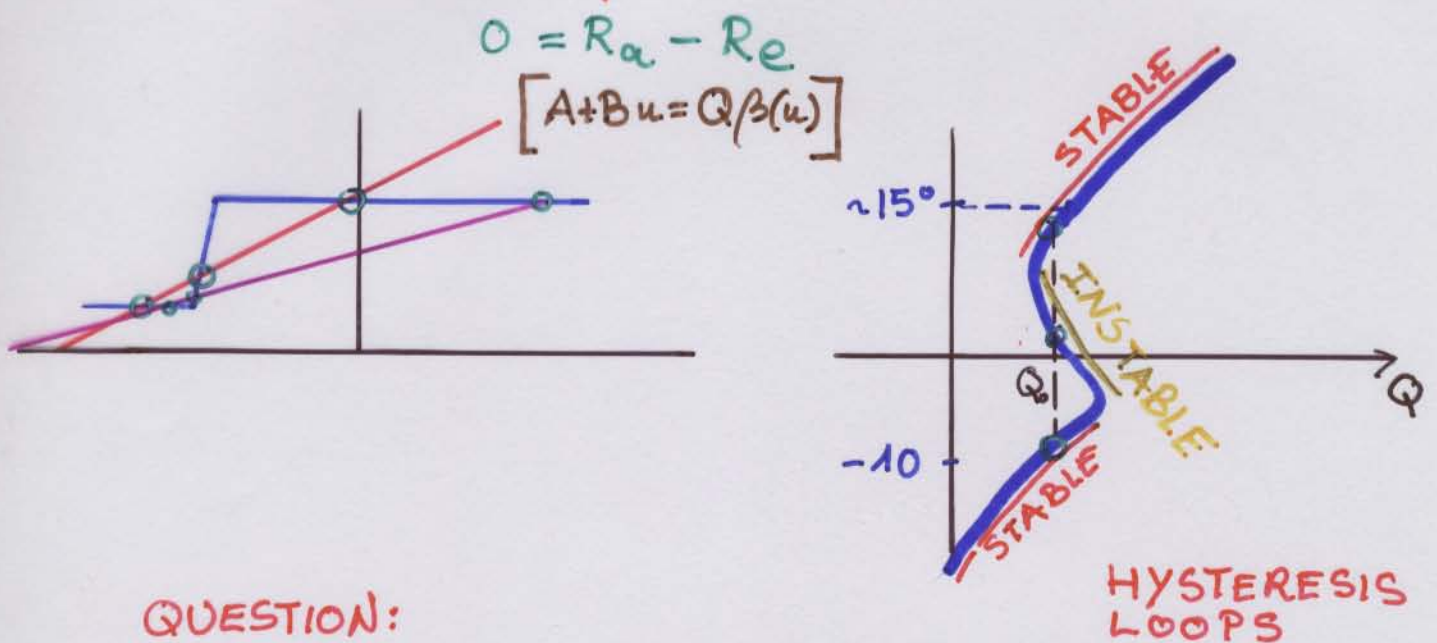 0 = Rₐ − Rₑ
[A+Bu = Qβ(u)]
STABLE
~15°
INSTABLE
Q₀
Q
-10
STABLE
HYSTERESIS
LOOPS
QUESTION: